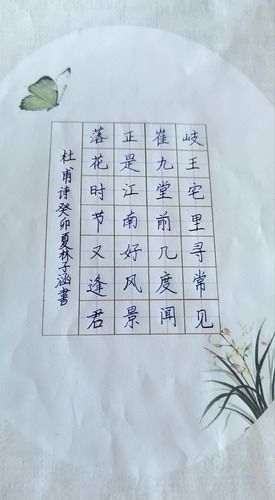 岐王宅里寻常见
崔九堂前几度闻
正是江南好风景
落花时节又逢君
杜甫诗癸卯夏林子涵书